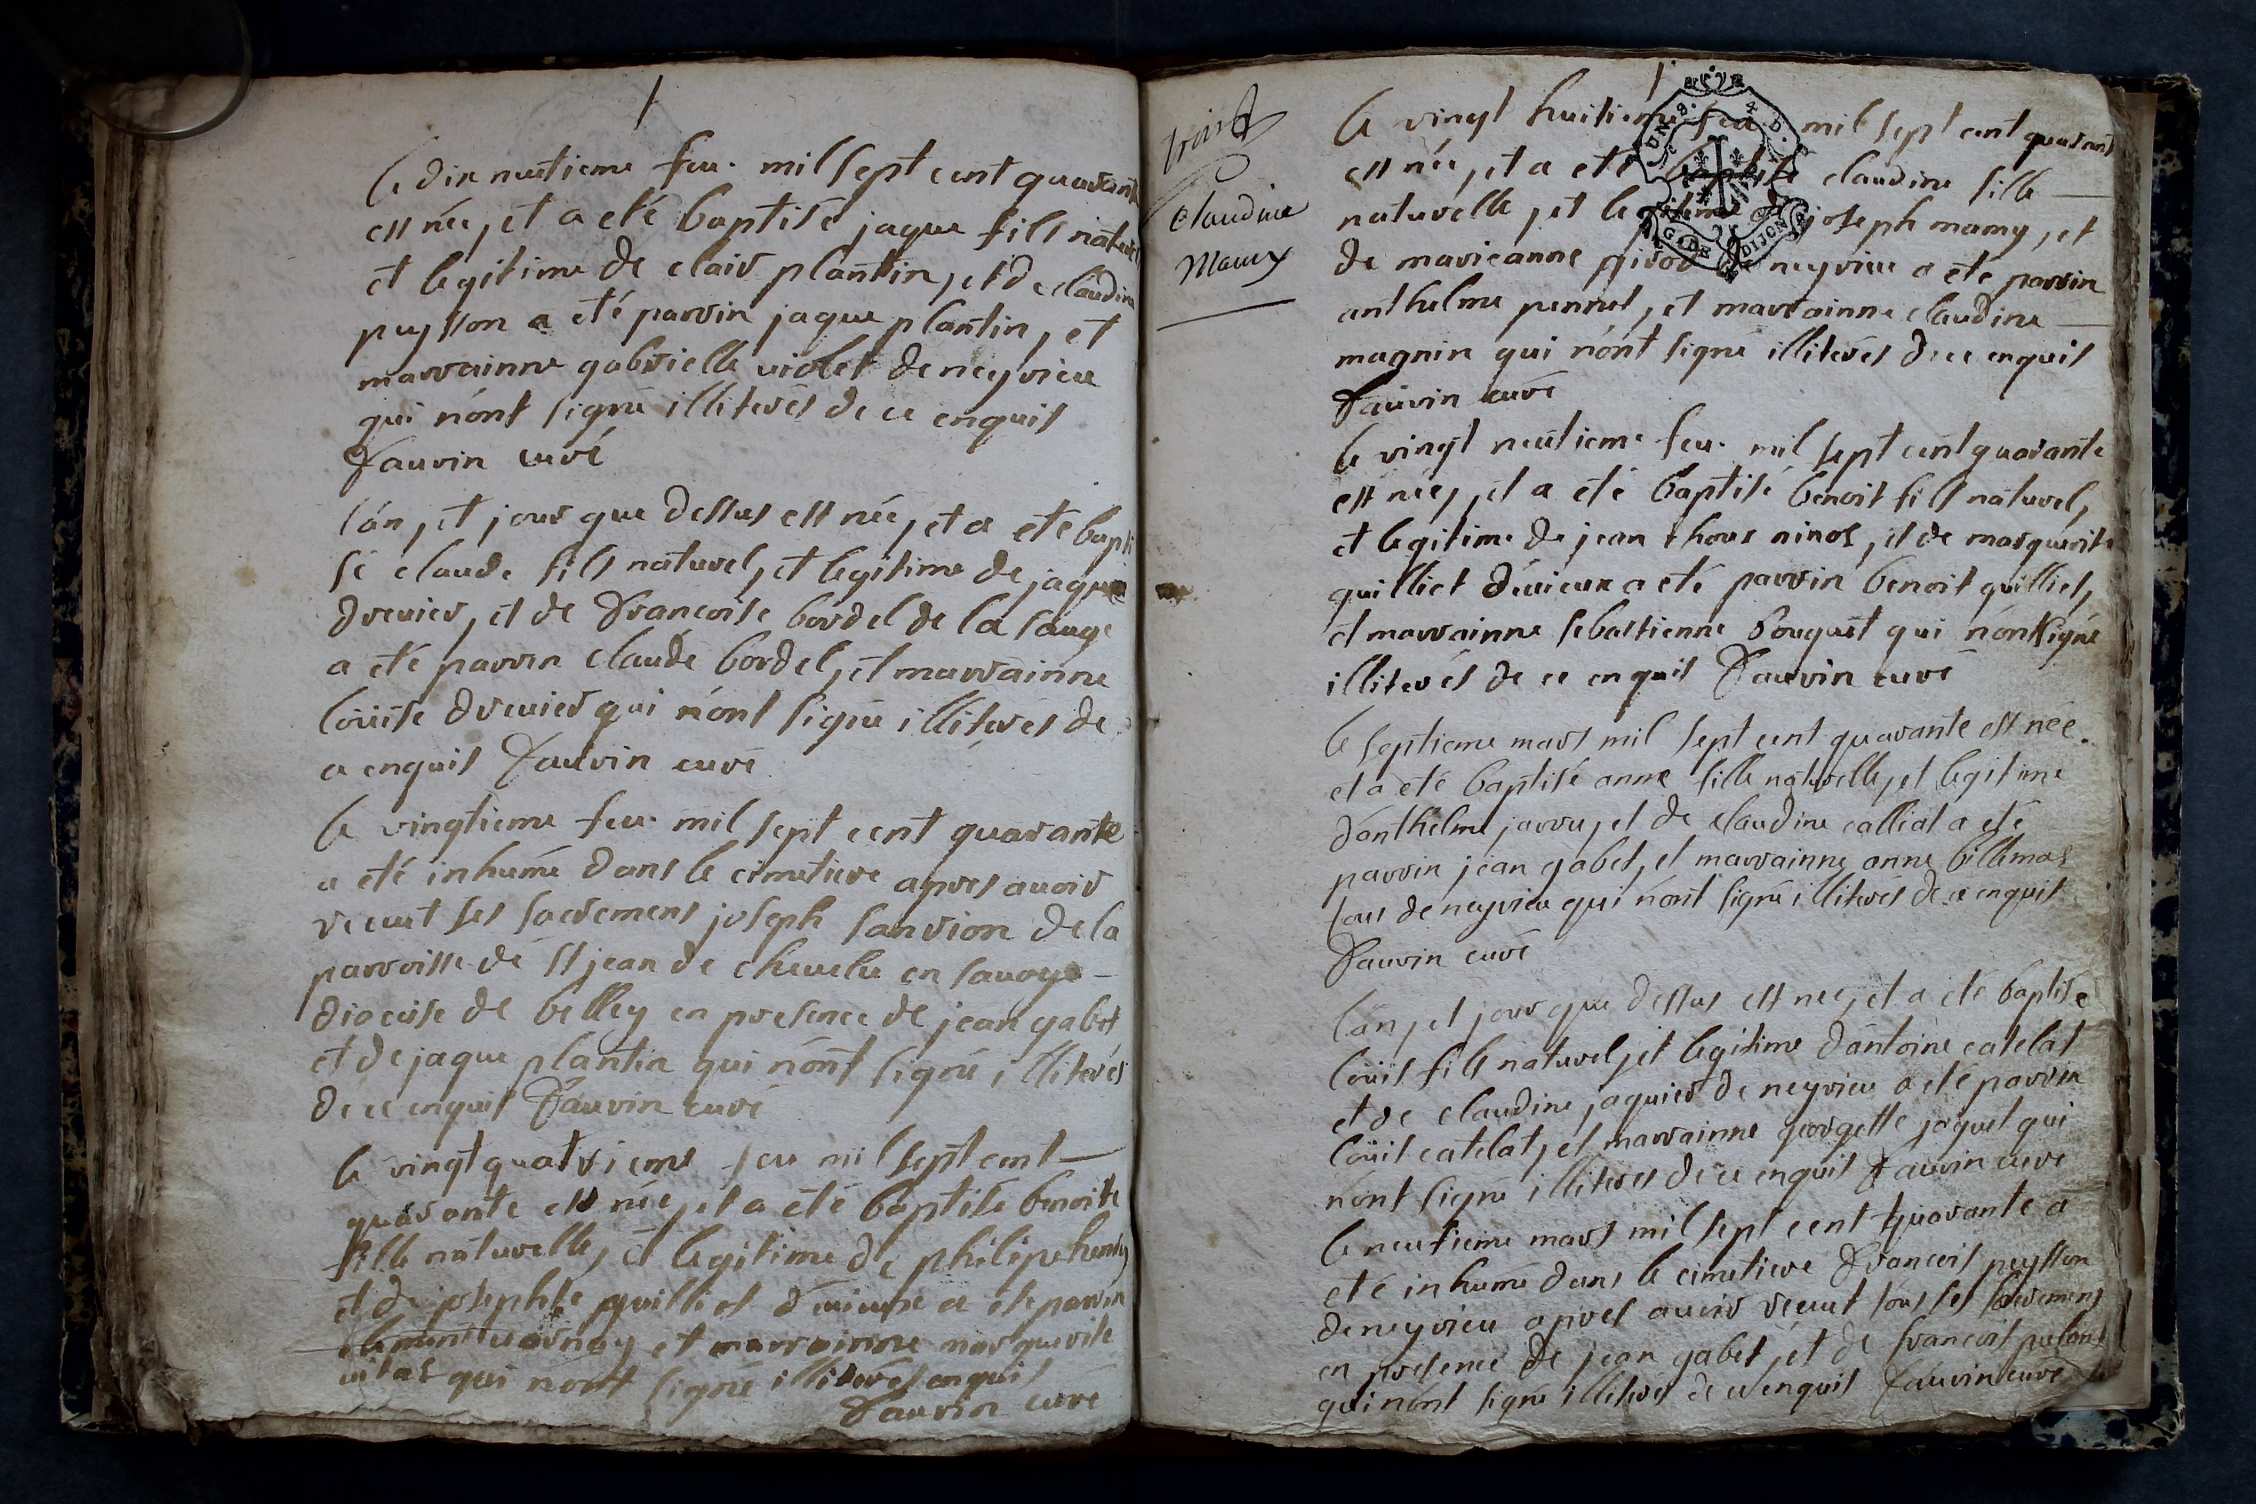 le dix neutieme feu. mil sept cent quarante
est née, et a eté baptisé jaque fils naturel
et legitime de clair plantin, et de claudine
puysson a eté parrin jaque plantin, et
marrainne gabrielle violet de neyrieu
qui n'ont signé illiterés de ce enquis
fauvin curé
l'an, et jour que dessus est née, et a eté bapti
sé claude fils naturel, et legitime de jaque
drevier, et de francoise bordel de la sauge
a eté parrin claude bordel, et marrainne
loüise drevier qui n'ont signé illiteres de
ce enquis fauvin curé
le vingtieme feu. mil sept cent quarante
a eté inhumé dans le cimetiere apres avoir
receut ses sacremens joseph sanvion de la
parroisse de st jean de chevelu en savoye
diocese de belley en presence de jean gabet
et de jaque plantin qui n'ont signé illiterés
de ce enquis fauvin curé
le vingt quatrieme feu mil sept cent
quarante est née, et a eté baptisé benoite
fille naturelle, et legitime de philipe
et de josephte quilliet d'evieux a eté parrin
et marrainne marguerite
qui n'ont signé illiterés enquis
fauvin curé
Claudine
Mamy
le vingt huitieme feu mil sept cent quarante
est née, et a eté baptisé claudine fille
naturelle, et legitime de joseph mamy, et
de marieanne de neyrieu a eté parrin
anthelme pennet, et marrainne claudine
magnin qui n'ont signé illiterés de ce enquis
fauvin curé
le vingt neutieme feu. mil sept cent quarante
est née, et a eté baptisé benoit fils naturel,
et legitime de jean, et de marguerite
quilliet d'evieux a eté parrin benoit quilliet,
et marrainne sebastienne bouquet qui n'ont signé
illiterés de ce enquis fauvin curé
le septieme mars mil sept cent quarante est née
et a eté baptisé anne fille naturelle, et legitime
d'anthelme, et de claudine calliat a eté
parrin jean gabet, et marrainne anne billemas
tous de neyrieu qui n'ont signé illiterés de ce enquis
fauvin curé
l'an, et jour que dessus est née, et a eté baptisé
loüis fils naturel, et legitime d'antoine catelat
et de claudine jaquier de neyrieu a eté parrin
loüis catelat, et marrainne georgette jaquet qui
n'ont signé illiterés de ce enquis fauvin curé
le neutieme mars mil sept cent quarante a
eté inhumé dans le cimetiere francois puysson
de neyrieu apres avoir receut tous ses sacremens
en presence de jean gabet, et de francois
qui n'ont signé illiterés de ce enquis fauvin curé